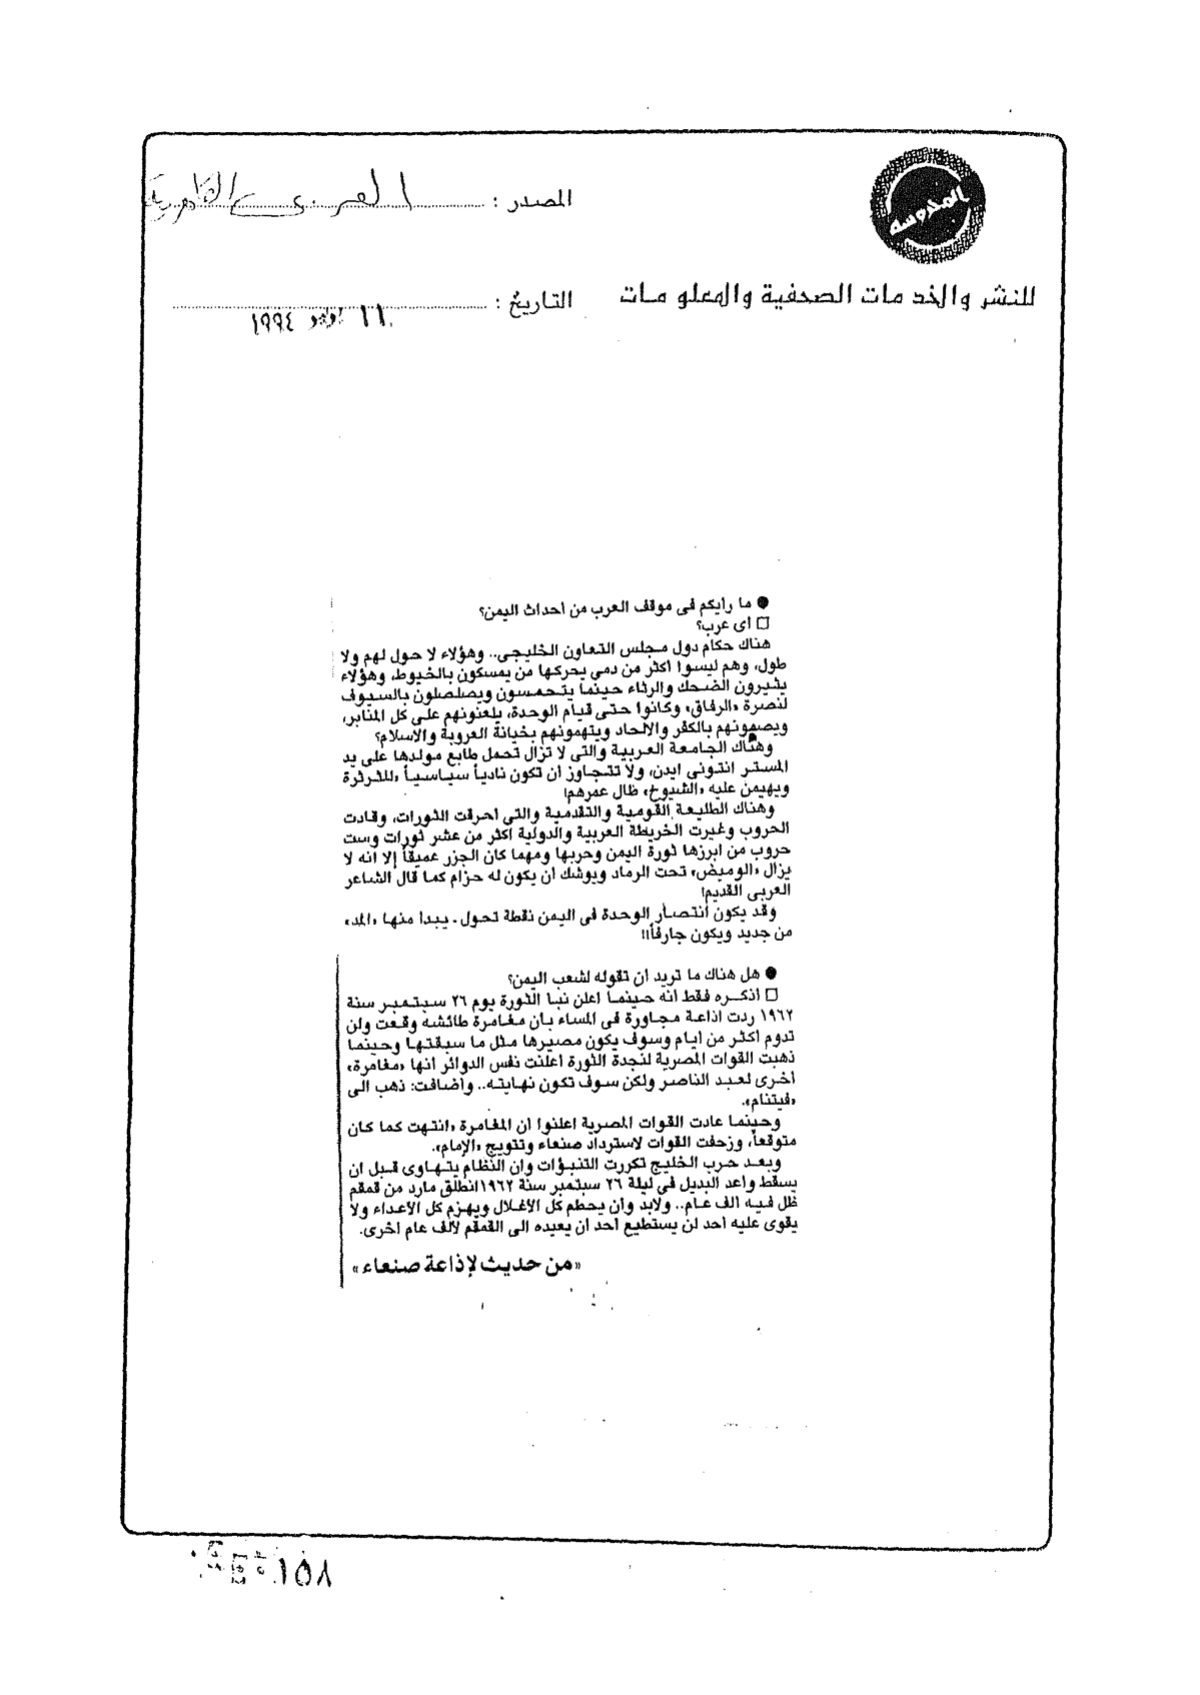 المصدر : العربي القاهرية
المدروسة
للنشر والخدمات الصحفية والمعلومات
التاريخ : ١١ ١٩٩٤
● ما رايكم فى موقف العرب من احداث اليمن؟
□ اى عرب؟
هناك حكام دول مجلس التعاون الخليجى.. وهؤلاء لا حول لهم ولا
طول، وهم ليسوا اكثر من دمي يحركها من يمسكون بالخيوط، وهؤلاء
يثيرون الضحك والرثاء حينما يتحمسون ويصلصلون بالسيوف
لنصرة «الرفاق» وكانوا حتى قيام الوحدة، يلعنونهم على كل المنابر،
ويصمونهم بالكفر والالحاد ويتهمونهم بخيانة العروبة والاسلام؟
وهناك الجامعة العربية والتى لا تزال تحمل طابع مولدها على يد
المستر انتونى ايدن، ولا تتجاوز ان تكون نادياً سياسياً «للثرثرة
ويهيمن عليه «الشيوخ» طال عمرهم!
وهناك الطليعة القومية والتقدمية والتى احرقت الثورات، وقادت
الحروب وغيرت الخريطة العربية والدولية اكثر من عشر ثورات وست
حروب من ابرزها ثورة اليمن وحربها ومهما كان الجزر عميقاً إلا انه لا
يزال «الوميض» تحت الرماد ويوشك ان يكون له حزام كما قال الشاعر
العربى القديم!
وقد يكون انتصار الوحدة فى اليمن نقطة تحول. يبدا منها «المد»
من جديد ويكون جارفاً!!
● هل هناك ما تريد ان تقوله لشعب اليمن؟
□ اذكره فقط انه حينما اعلن نبا الثورة يوم ٢٦ سبتمبر سنة
١٩٦٢ ردت اذاعة مجاورة فى المساء بان مغامرة طائشه وقعت ولن
تدوم اكثر من ايام وسوف يكون مصيرها مثل ما سبقتها وحينما
ذهبت القوات المصرية لنجدة الثورة اعلنت نفس الدوائر انها «مغامرة»
اخرى لعبد الناصر ولكن سوف تكون نهايته.. واضافت: ذهب الى
«فيتنام».
وحينما عادت القوات المصرية اعلنوا ان المغامرة «انتهت كما كان
متوقعاً، وزحفت القوات لاسترداد صنعاء وتتويج «الإمام».
وبعد حرب الخليج تكررت التنبؤات وان النظام يتهاوى قبل ان
يسقط واعد البديل فى ليلة ٢٦ سبتمبر سنة ١٩٦٢ انطلق مارد من قمقم
ظل فيه الف عام.. ولابد وان يحطم كل الاغلال ويهزم كل الاعداء ولا
يقوى عليه احد لن يستطيع احد ان يعيده الى القمقم لالف عام اخرى.
«من حديث لإذاعة صنعاء»
١٥٨